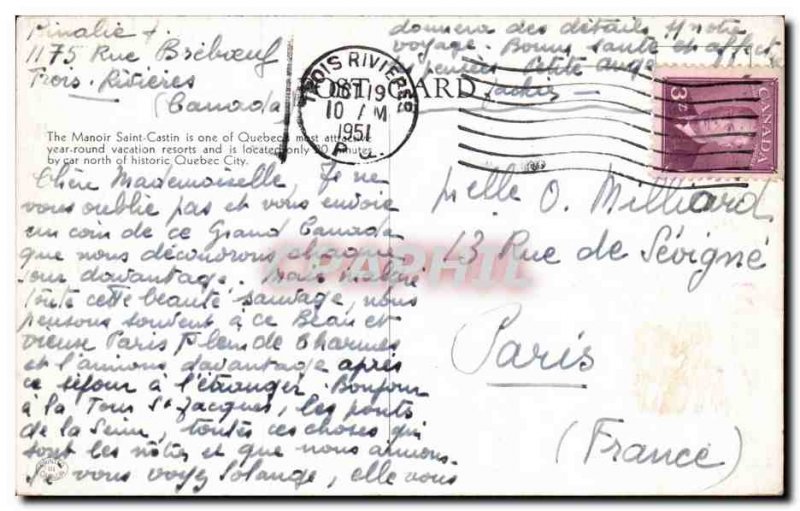 1175 Rue Brébœuf
Trois-Rivières
(Canada
donnera des détails notre
voyage. Bonne santé et affect
petite
TROIS RIVIERES
OCT 19
10 M
1951
P.Q.
POST CARD
CANADA
3¢
The Manoir Saint-Castin is one of Quebec's most attractive
year-round vacation resorts and is located only 20 minutes
by car north of historic Quebec City.
Chère Mademoiselle, Je ne
vous oublie pas et vous envoie
un coin de ce Grand Canada
que nous découvrons chaque
jour davantage. Mais malgré
toute cette beauté sauvage, nous
pensons souvent à ce Beau et
vieux Paris plein de Charmes
et l'aimons davantage après
ce séjour à l'étranger. Bonjour
à la Tour St Jacques, les ponts
de la Seine, toutes ces choses qui
sont les nôtres et que nous aimons.
Si vous voyez Solange, elle vous
Melle O. Milliard
13 Rue de Sévigné
Paris
(France)
CPAPHIL